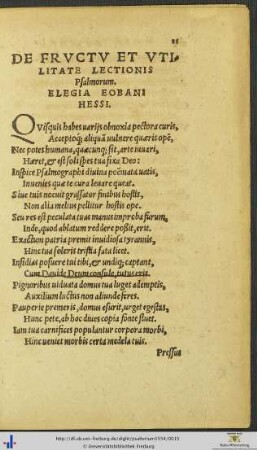 25
DE FRVCTV ET VTI-
LITATE LECTIONIS
Psalmorum.
ELEGIA EOBANI
HESSI.
QVisquis habes uarijs obnoxia pectora curis,
Acceptoq; aliqua uulnere quæris opē,
Nec potes humana, quæcunq; sit, arte iuuari,
Hæret, & est soli spes tua fixa Deo:
Inspice Psalmographi diuina poëmata uatis,
Inuenies quæ te cura leuare queat.
Siue tuis nocuit grassator finibus hostis,
Non alia melius pellitur hostis ope.
Seu res est peculata tuas manus improba furum,
Inde, quod ablatum reddere possit, erit.
Exactum patria premit inuidiosa tyrannis,
Hinc tua solerit tristia fata licet.
Insidias posuere tui tibi, & undiq; captant,
Cum Dauide Deum consule, tutus eris.
Pignoribus uiduata domus tua luget ademptis,
Auxilium luctus non aliunde feres.
Pauperie premeris, domus esurit, urget egestas,
Hanc pete, ab hoc diues copia fonte fluet.
Iam tua carnifices populantur corpora morbi,
Hinc ueniet morbis certa medela tuis.
Pressus
http://dl.ub.uni-freiburg.de/diglit/psalterium1554/0035
© Universitätsbibliothek Freiburg